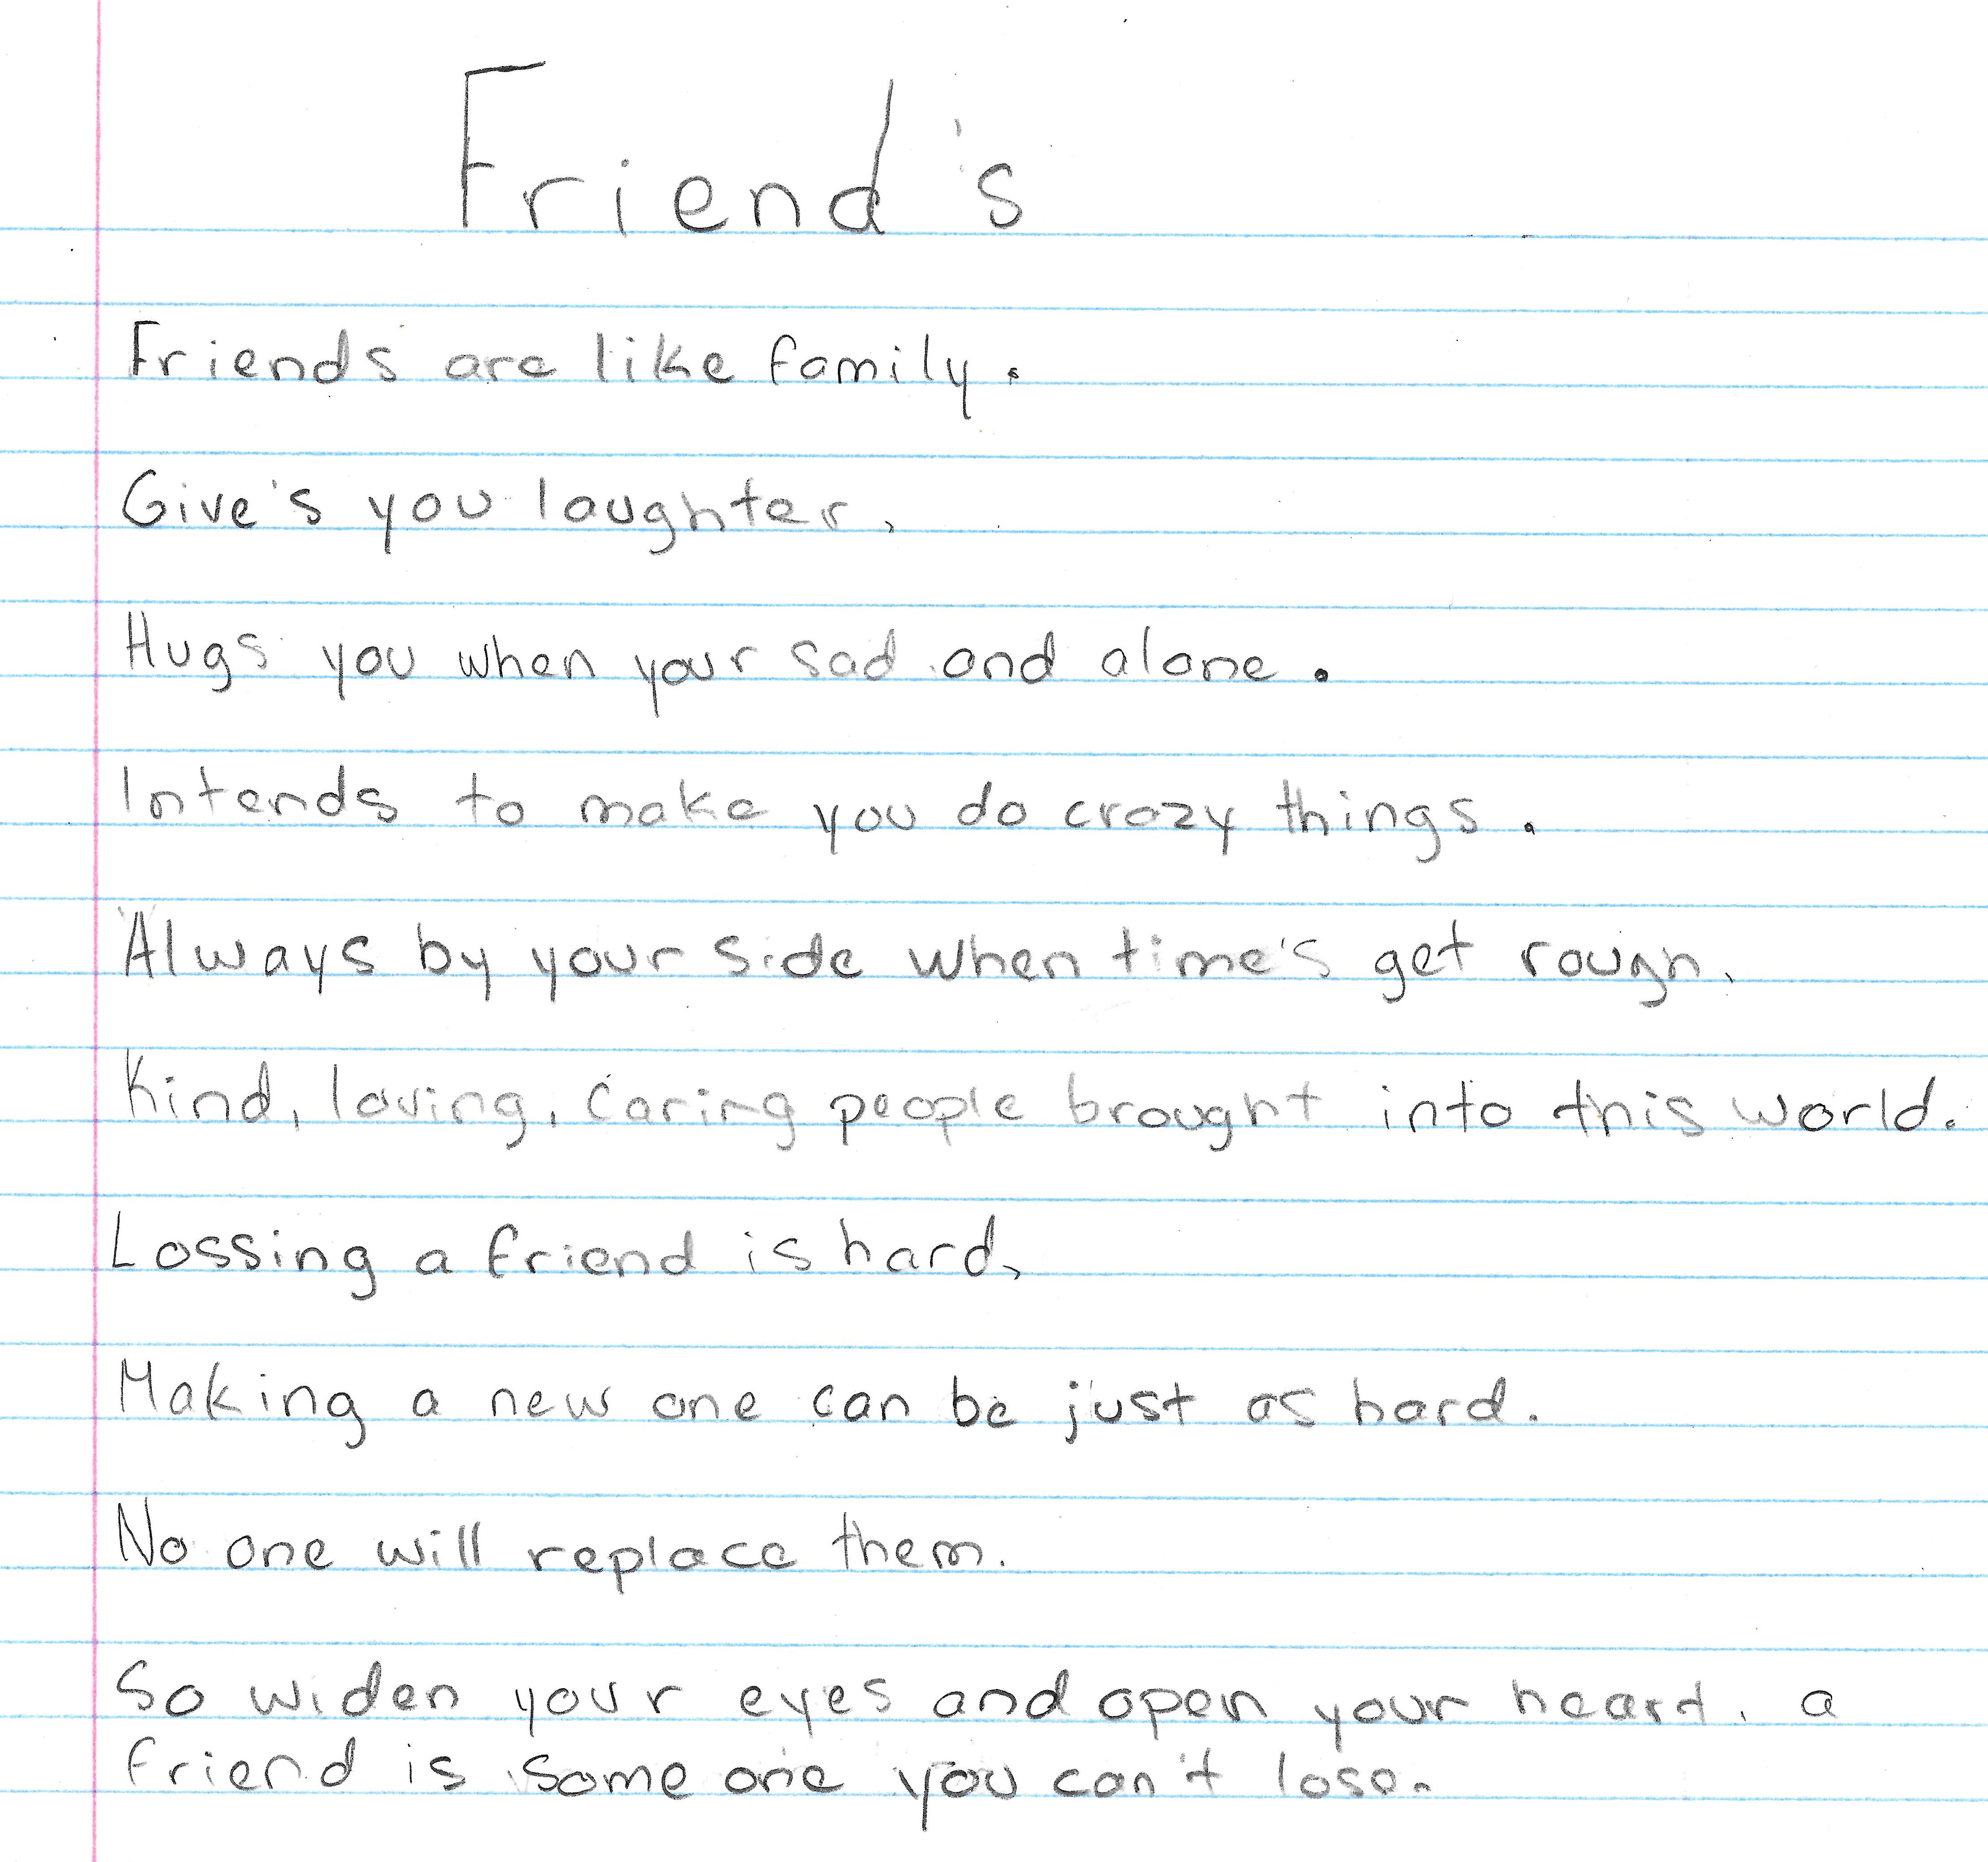 Friend's
Friends are like family.
Give's you laughter,
Hugs you when your sad and alone.
Intends to make you do crazy things.
Always by your side when time's get rough.
Kind, loving, caring people brought into this world.
Lossing a friend is hard,
Making a new one can be just as hard.
No one will replace them.
So widen your eyes and open your heart. a
friend is some one you can't lose.